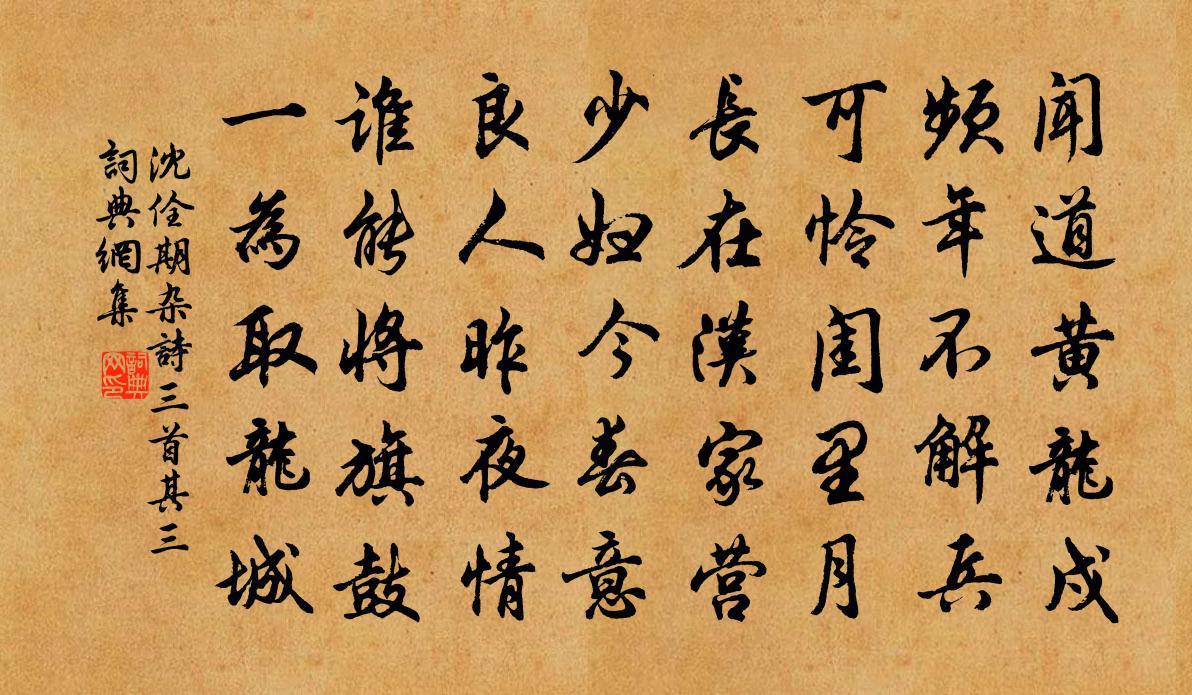 闻道黄龍戍
频年不解兵
可怜闺里月
長在漢家营
少妇今春意
良人昨夜情
谁能将旗鼓
一為取龍城
沈佺期杂詩三首其三
詞典網集
詞典网印